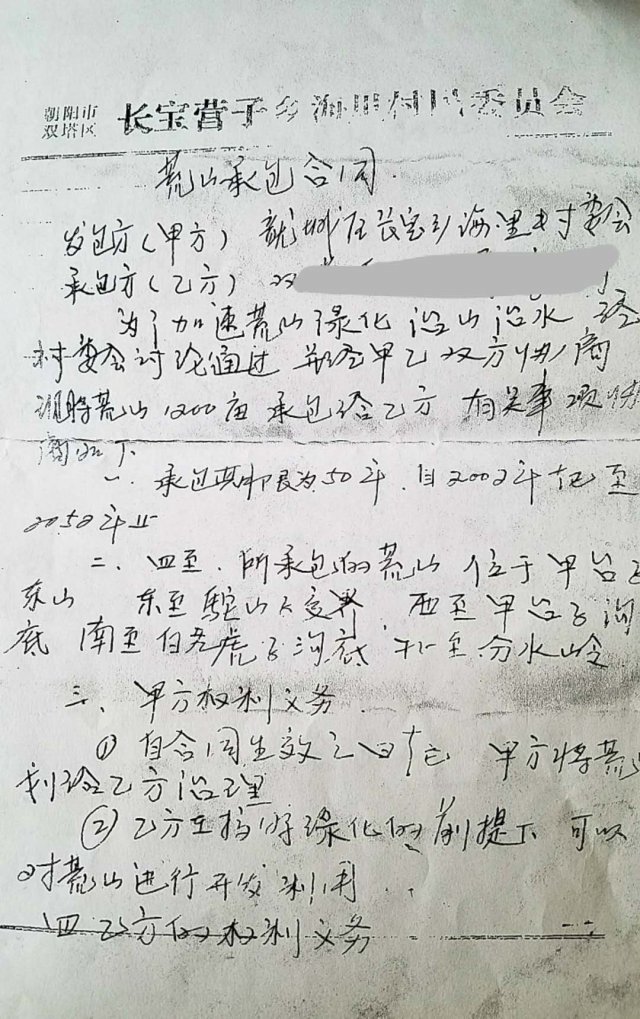 朝阳市
双塔区
长宝营子乡海里村村民委员会
荒山承包合同
发包方（甲方） 龙城区长宝乡海里村委会
承包方（乙方） 双
为了加速荒山绿化 治山治水 经
村委会讨论通过 并经甲乙双方协商
现将荒山1200亩 承包给乙方 有关事项协
商如下
一、承包期限为50年，自2002年起至
2052年止
二、四至，所承包的荒山 位于甲台子
东山 东至 山 交界，西至甲台子沟
底 南至白老虎子沟底 北至分水岭
三、甲方权利义务
① 自合同生效之日起 甲方将荒山
划给乙方治理
② 乙方在搞好绿化的前提下 可以
对荒山进行开发利用
四 乙方的权利义务